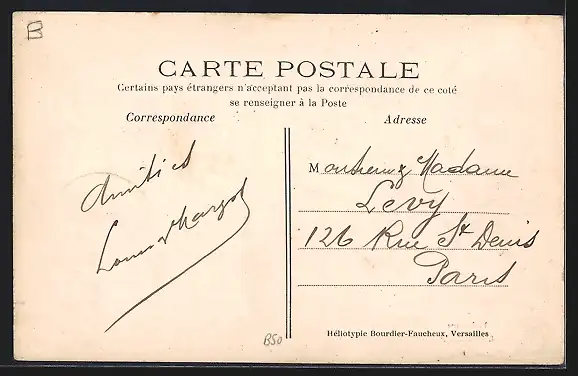 B
CARTE POSTALE
Certains pays étrangers n'acceptant pas la correspondance de ce coté
se renseigner à la Poste
Correspondance
Adresse
Amitiés
Monsieur & Madame
Levy
126 Rue St Denis
Paris
B50
Héliotypie Bourdier-Faucheux, Versailles